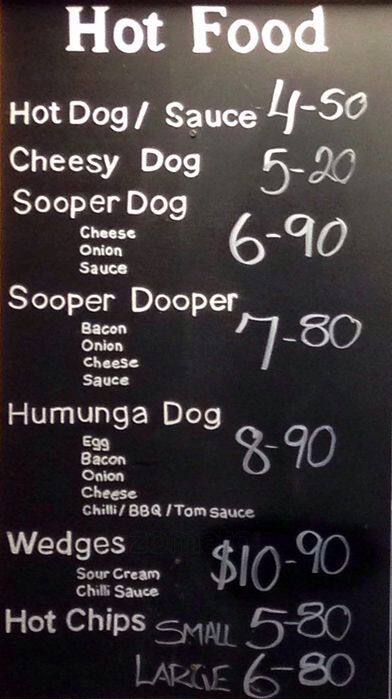 Hot Food
Hot Dog/ Sauce 4-50
Cheesy Dog 5-20
Sooper Dog 6-90
Cheese
Onion
Sauce
Sooper Dooper 7-80
Bacon
Onion
Cheese
Sauce
Humunga Dog 8-90
Egg
Bacon
Onion
Cheese
Chilli/BBQ/Tom sauce
Wedges $10-90
Sour Cream
Chilli Sauce
Hot Chips SMALL 5-80
LARGE 6-80